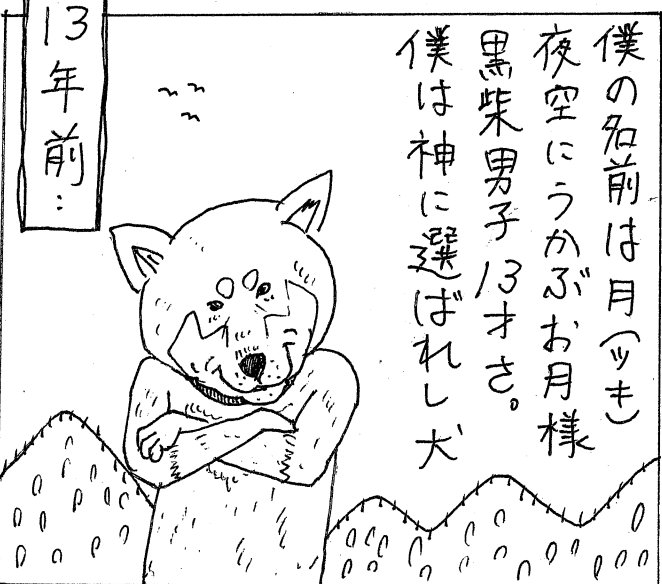 僕の名前は月(ツキ)
夜空にうかぶお月様
黒柴男子13才さ。
僕は神に選ばれし犬
13年前…